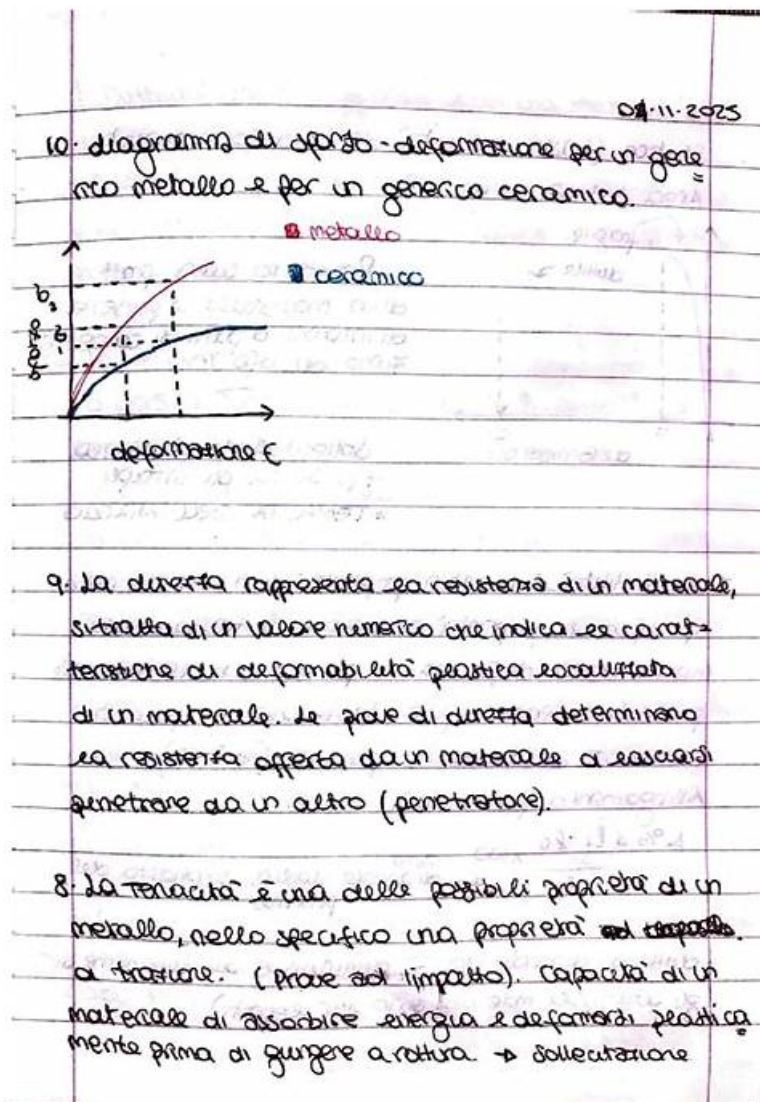 04.11.2025
10. diagramma di sforzo-deformazione per un gene
rico metallo e per un generico ceramico.
metallo
ceramico
sforzo
deformazione ε
9. La durezza rappresenta la resistenza di un materiale,
si tratta di un valore numerico che indica le carat-
teristiche di deformabilità plastica localizzata
di un materiale. Le prove di durezza determinano
la resistenza offerta da un materiale a lasciarsi
penetrare da un altro (penetratore).
8. La tenacità è una delle possibili proprietà di un
metallo, nello specifico una proprietà
di trazione. (Prove ad impatto). Capacità di un
materiale di assorbire energia e deformarsi plastica
mente prima di giungere a rottura. → sollecitazione